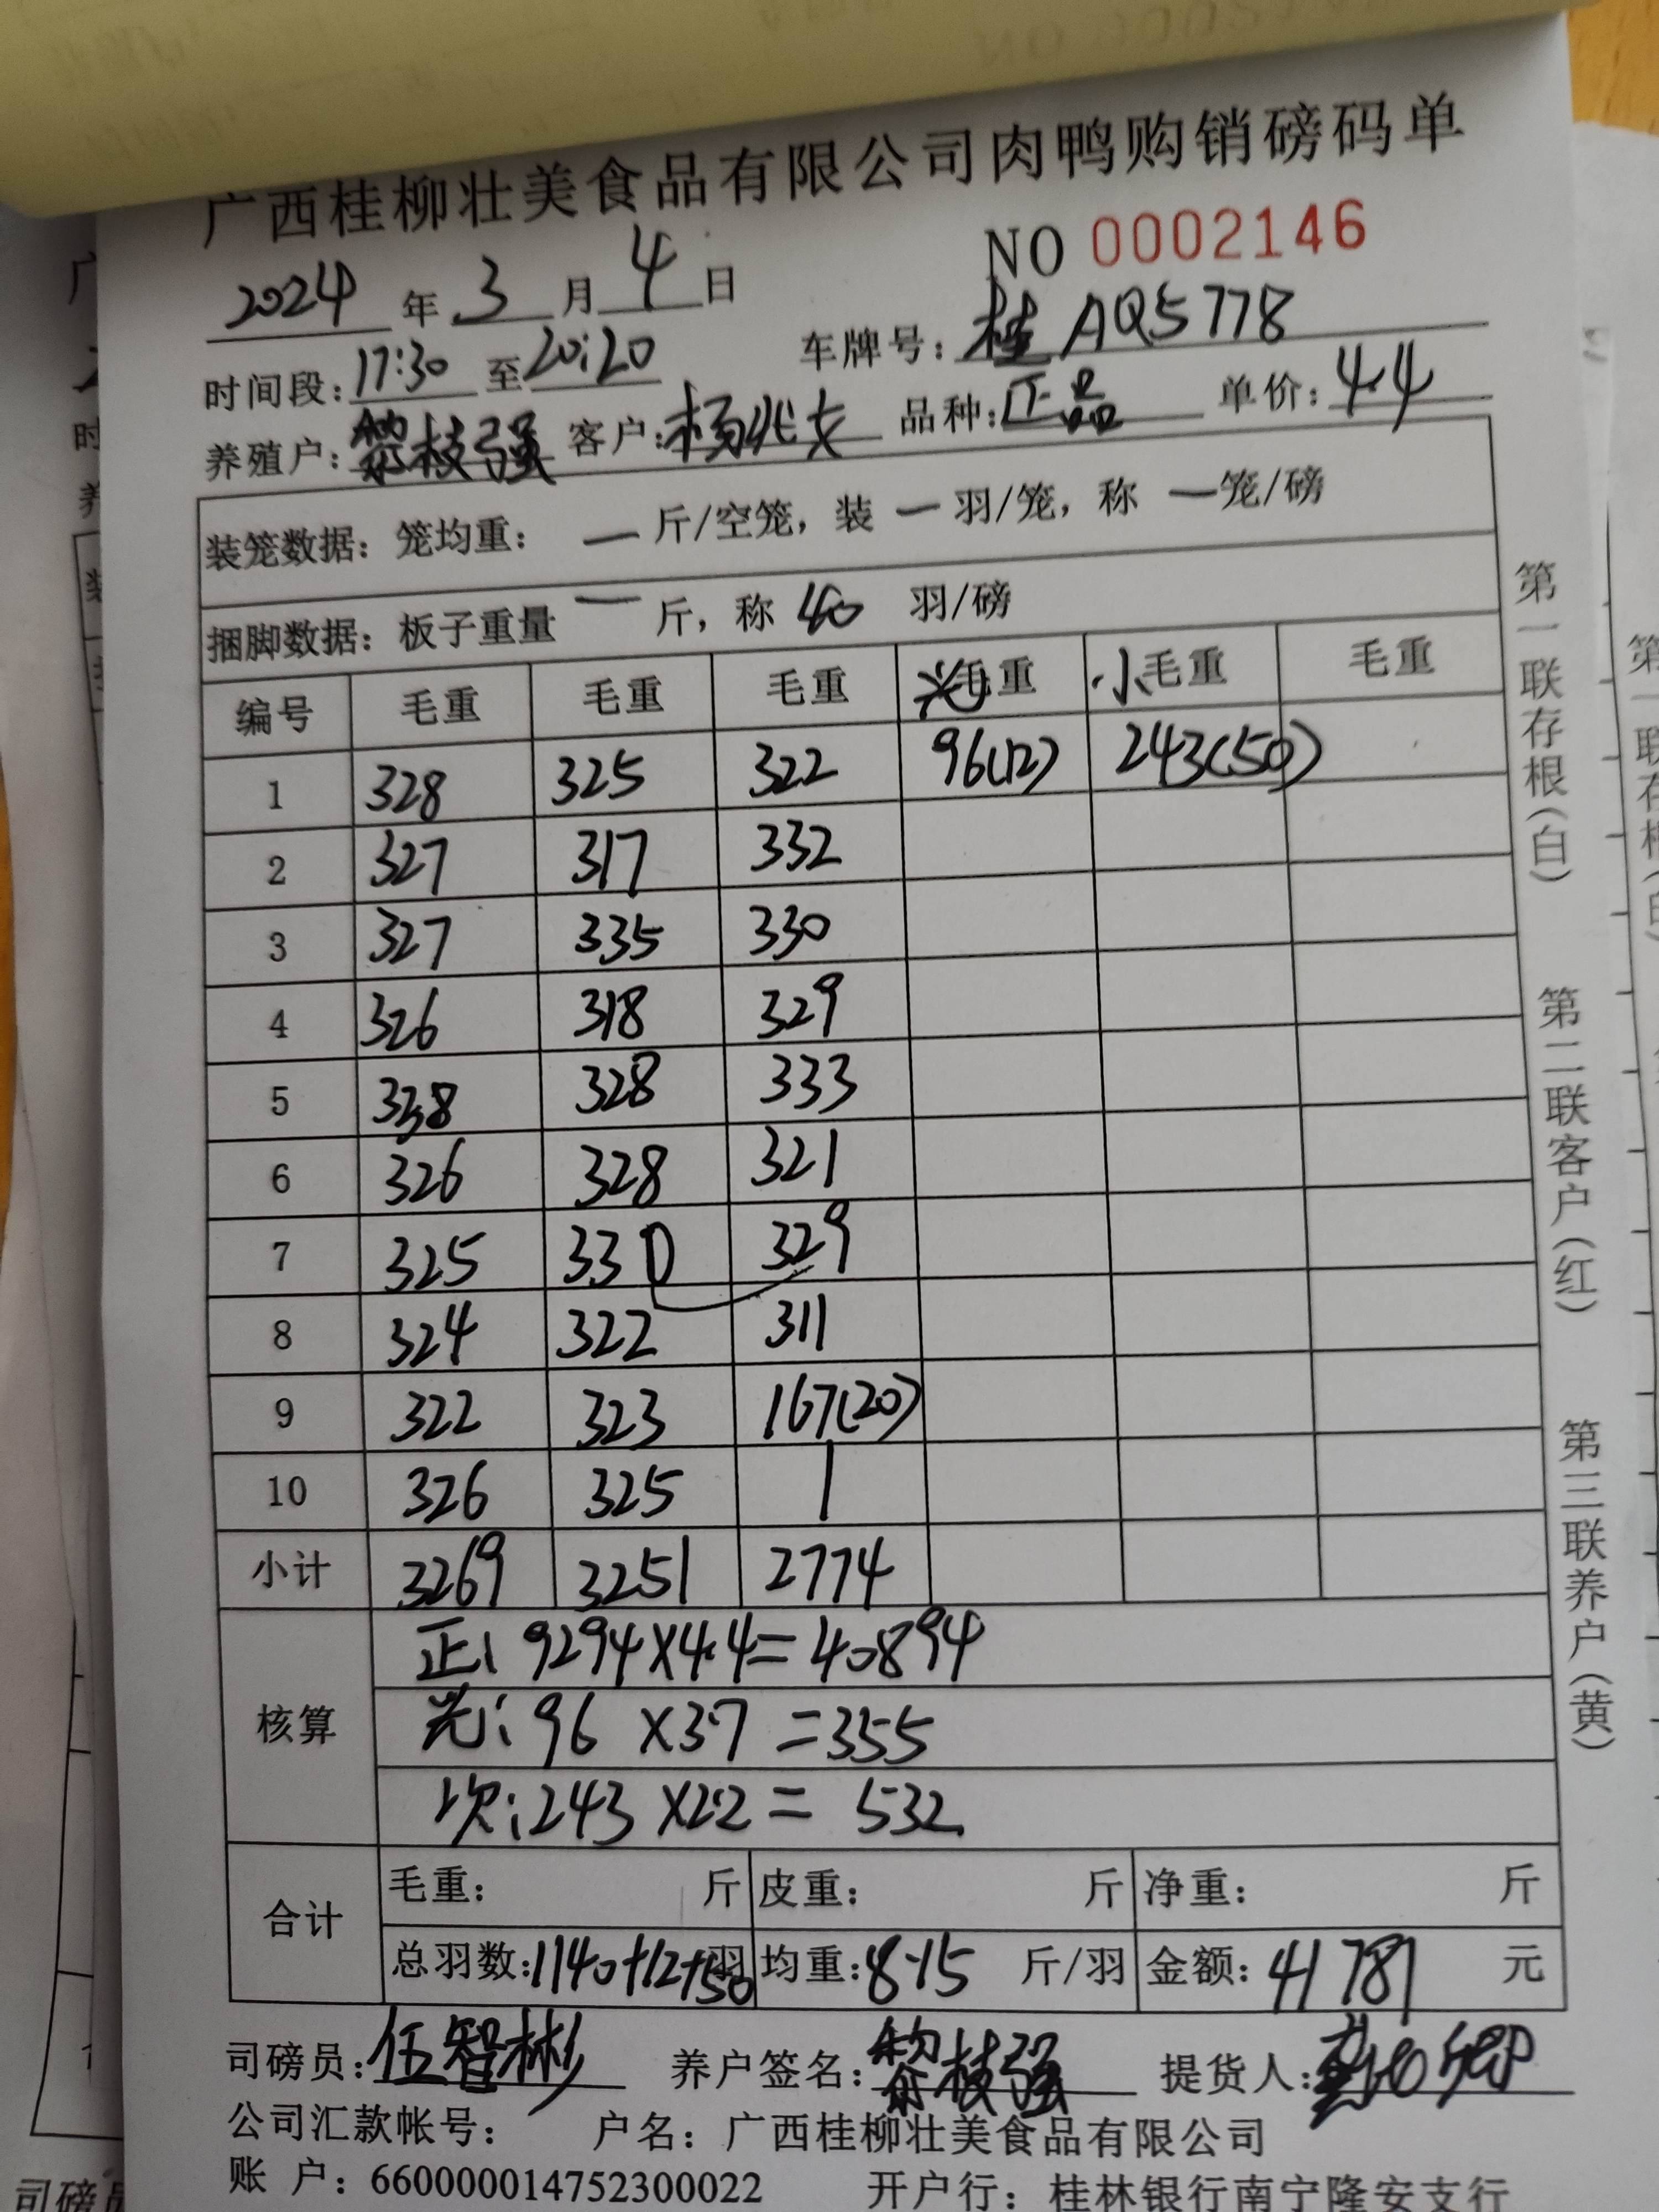 广西桂柳壮美食品有限公司肉鸭购销磅码单
NO 0002146
2024年 3月 4日
时间段：17:30 至 20:20 车牌号：桂AQ5778
养殖户：黎枝强 客户：杨兆大 品种：正品 单价：4.4
装笼数据：笼均重：一斤/空笼，装一羽/笼，称一笼/磅
捆脚数据：板子重量一斤，称 40 羽/磅
编号 毛重 毛重 毛重 光毛重 小毛重 毛重
1 328 325 322 96(12) 243(50)
2 327 317 332
3 327 335 330
4 326 318 329
5 338 328 333
6 326 328 321
7 325 330 329
8 324 322 311
9 322 323 167(20)
10 326 325
小计 3269 3251 2774
核算
正：9294×4.4=40894
光：96×3.7=355
次：243×2.2=532
合计
毛重： 斤 皮重： 斤 净重： 斤
总羽数：1140+12+50羽 均重：8.15 斤/羽 金额：41781 元
司磅员：伍智彬 养户签名：黎枝强 提货人：
公司汇款帐号： 户名：广西桂柳壮美食品有限公司
账 户：660000014752300022 开户行：桂林银行南宁隆安支行
第一联存根（白） 第二联客户（红） 第三联养户（黄）